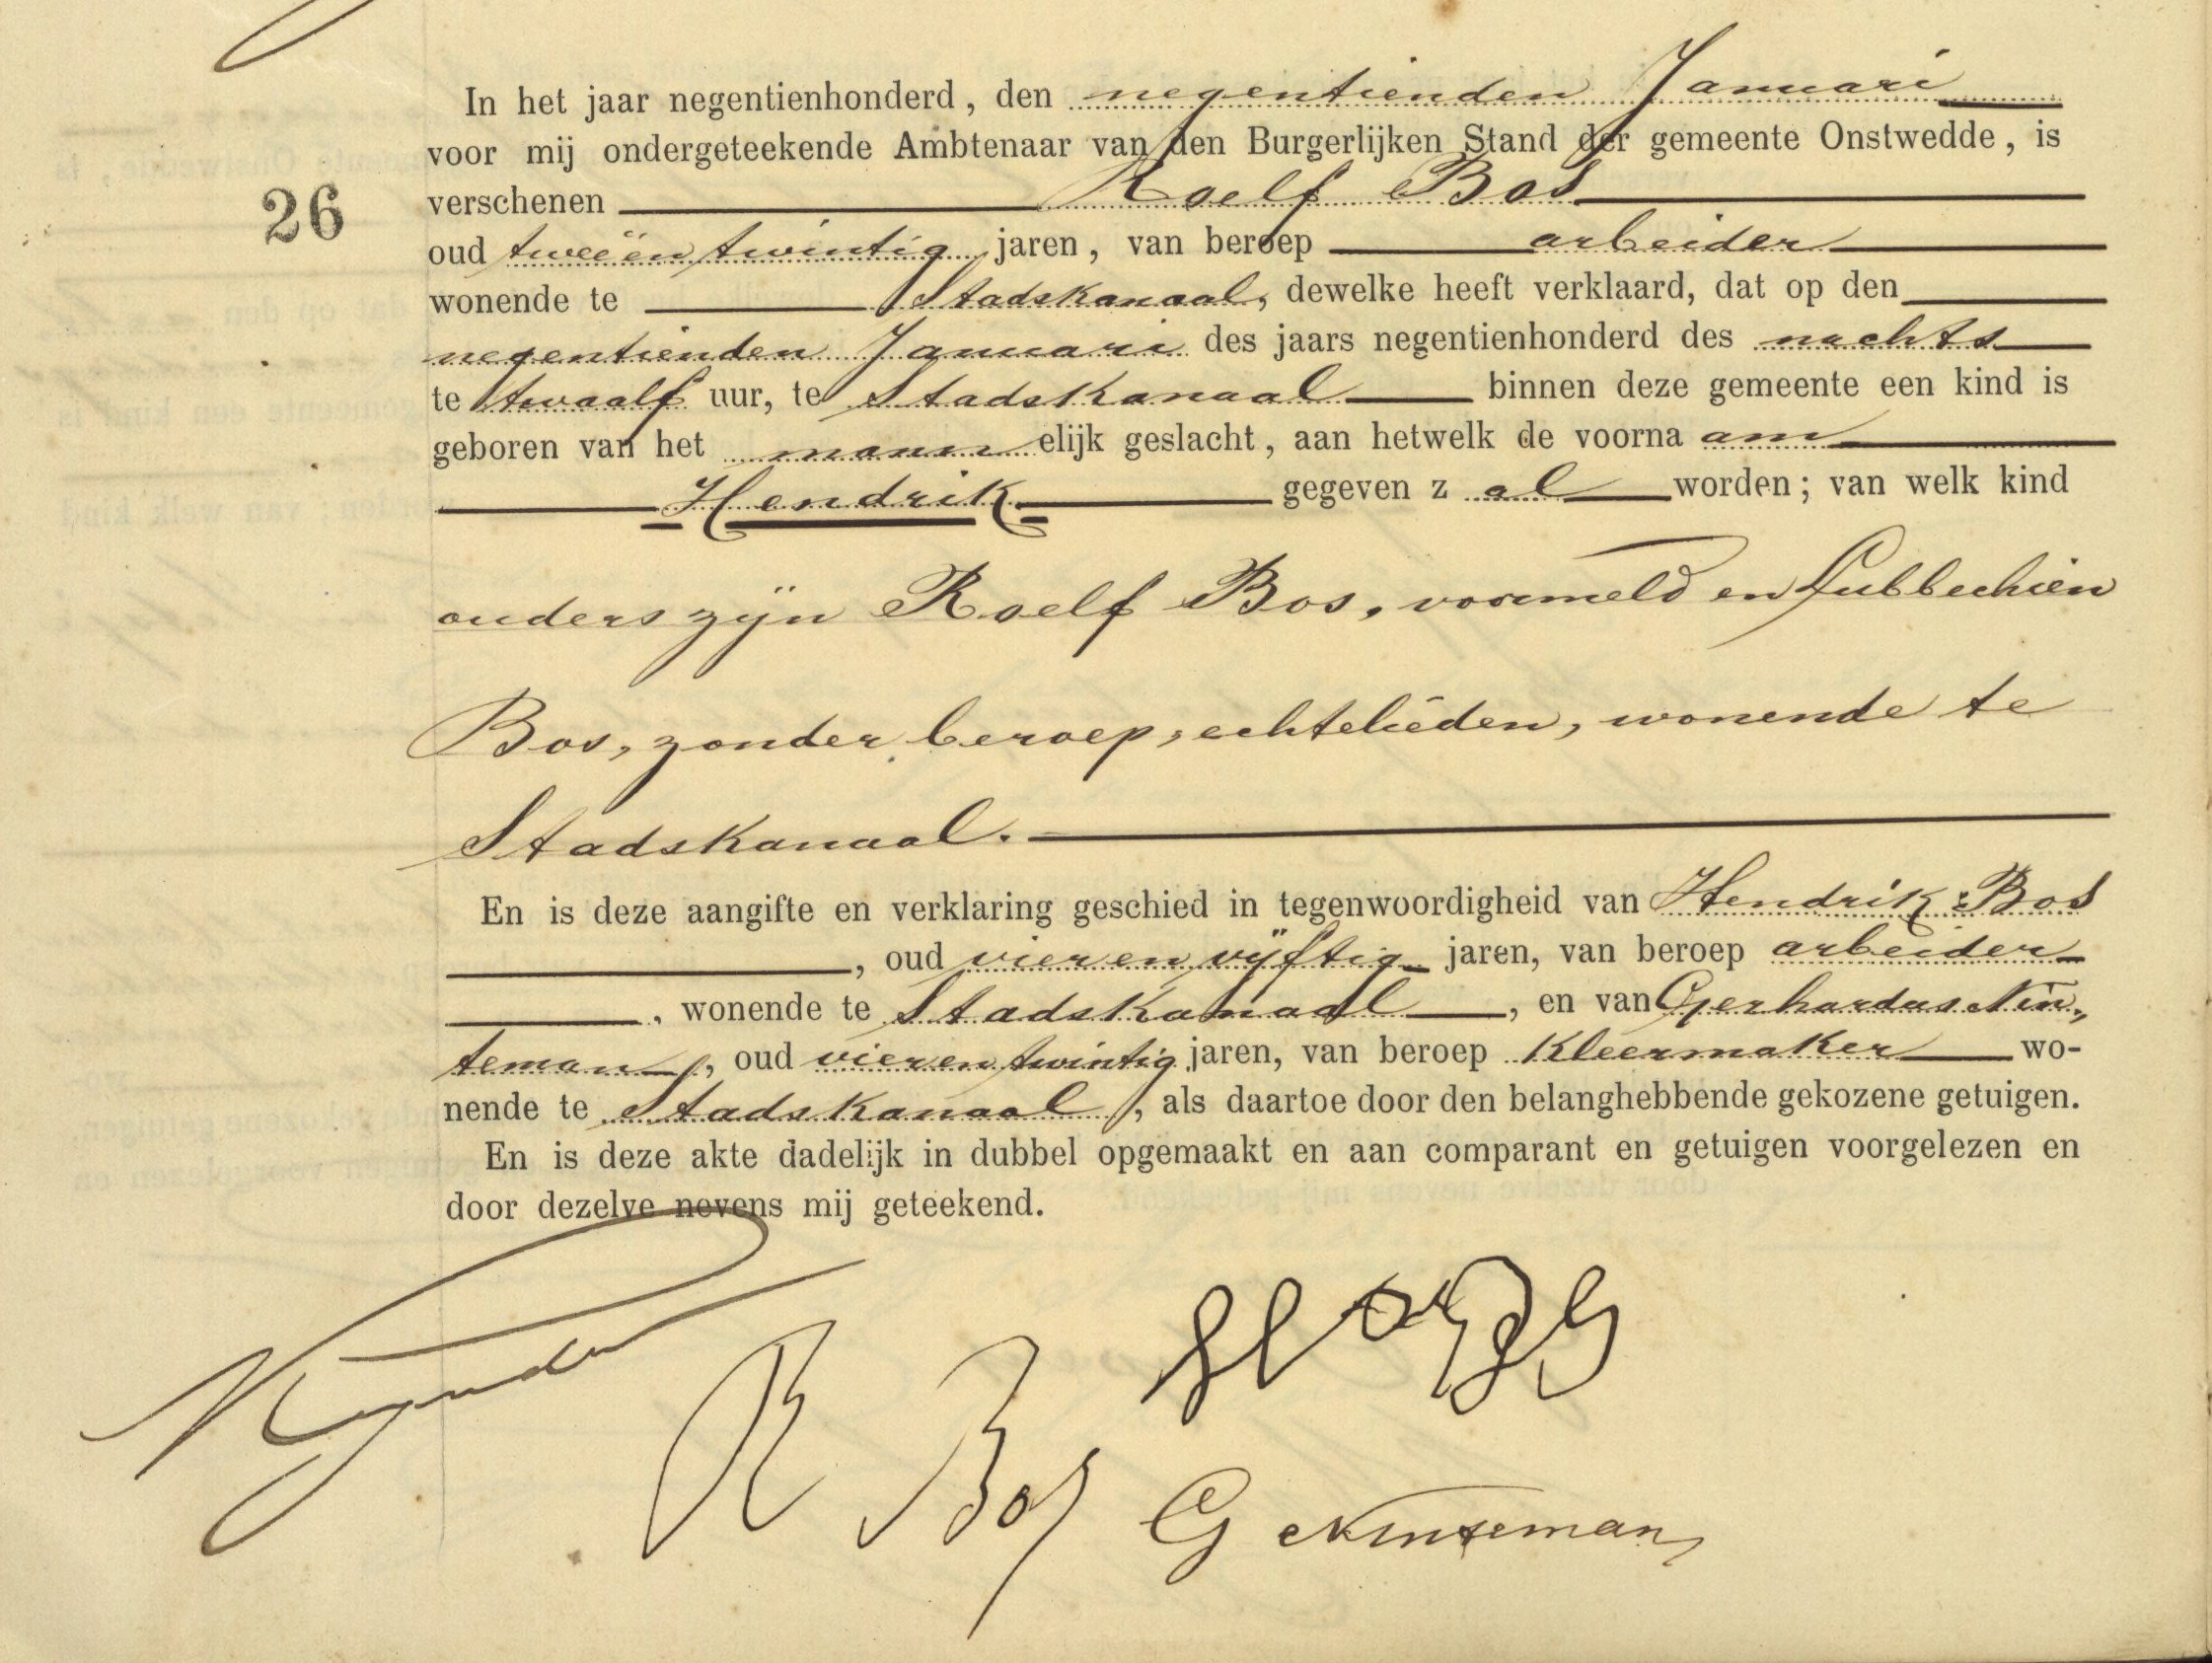 In het jaar negentienhonderd, den negentienden Januari
voor mij ondergeteekende Ambtenaar van den Burgerlijken Stand der gemeente Onstwedde, is
26
verschenen Roelf Bos
oud tweeën twintig jaren, van beroep arbeider
wonende te Stadskanaal, dewelke heeft verklaard, dat op den
negentienden Januari des jaars negentienhonderd des nachts
te twaalf uur, te Stadskanaal binnen deze gemeente een kind is
geboren van het mannelijk geslacht, aan hetwelk de voornaam
Hendrik gegeven zal worden; van welk kind
ouders zijn Roelf Bos, voormeld en Lubbechien
Bos, zonder beroep, echtelieden, wonende te
Stadskanaal.
En is deze aangifte en verklaring geschied in tegenwoordigheid van Hendrik Bos
, oud vier en vijftig jaren, van beroep arbeider
, wonende te Stadskanaal, en van Gerhardus Nin„
teman, oud vier en twintig jaren, van beroep Kleermaker wo-
nende te Stadskanaal, als daartoe door den belanghebbende gekozene getuigen.
En is deze akte dadelijk in dubbel opgemaakt en aan comparant en getuigen voorgelezen en
door dezelve nevens mij geteekend.
R Bos
G Ninteman